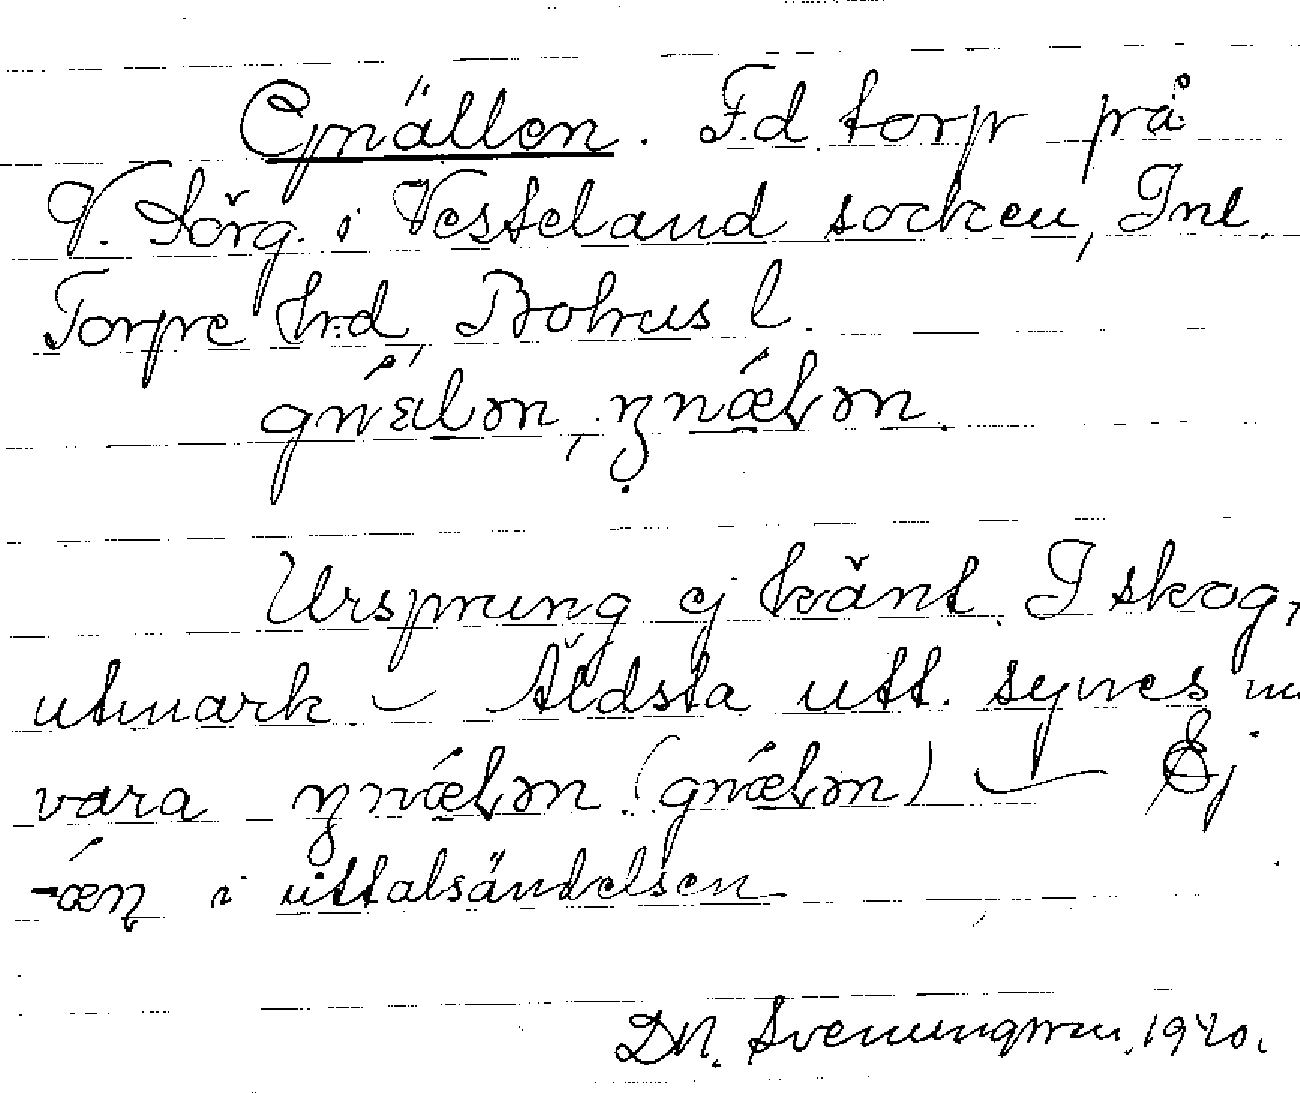 Gnällen. F.d. torp på
V. Körg. i Västerland socken, Inl.
Torpe hrd, Bohus l.
gnæ̀lən, ŋnæ̀lən.
Ursprung ej känt. I skog,
utmark. – Äldsta utt. synes
vara ŋnæ̀lən (gnæ̀lən) – Ej
-æn i uttalsändelsen
D.N. Svenungsson, 1940.